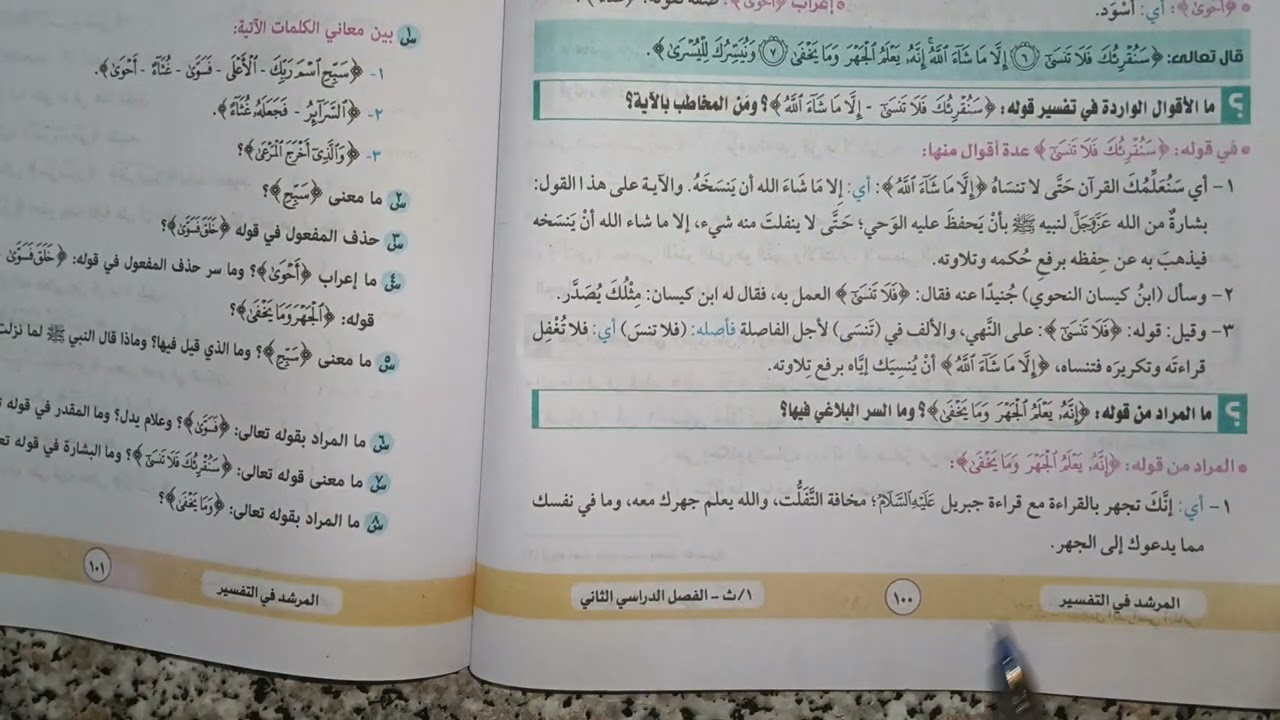 ﴿أَحْوَىٰ﴾: أي: أَسْوَد.
إعراب ﴿أَحْوَىٰ﴾: صفة لقوله: ﴿غُثَاءً﴾.
قال تعالى: ﴿سَنُقْرِئُكَ فَلَا تَنسَىٰٓ ٦ إِلَّا مَا شَآءَ ٱللَّهُۚ إِنَّهُۥ يَعْلَمُ ٱلْجَهْرَ وَمَا يَخْفَىٰ ٧ وَنُيَسِّرُكَ لِلْيُسْرَىٰ﴾.
؟ ما الأقوال الواردة في تفسير قوله: ﴿سَنُقْرِئُكَ فَلَا تَنسَىٰٓ - إِلَّا مَا شَآءَ ٱللَّهُ﴾؟ ومَن المخاطب بالآية؟
• في قوله: ﴿سَنُقْرِئُكَ فَلَا تَنسَىٰٓ﴾ عدة أقوال منها:
١- أي سَنُعَلِّمُكَ القرآن حَتَّى لا تنسَاهُ ﴿إِلَّا مَا شَآءَ ٱللَّهُ﴾: أي: إلا مَا شَاءَ الله أن يَنسَخَهُ. والآية على هذا القول:
بشارةٌ من الله عَزَّوَجَلَّ لنبيه ﷺ بأنْ يَحفظَ عليه الوَحي؛ حَتَّى لا ينفلتَ منه شيء، إلا ما شاء الله أنْ يَنسَخه
فيذهبَ به عن حِفظه برفعِ حُكمه وتلاوته.
٢- وسأل (ابنُ كيسان النحوي) جُنيدًا عنه فقال: ﴿فَلَا تَنسَىٰٓ﴾ العمل به، فقال له ابن كيسان: مِثْلُكَ يُصَدَّر.
٣- وقيل: قوله: ﴿فَلَا تَنسَىٰٓ﴾: على النَّهي، والألف في (تَنسَى) لأجل الفاصلة فأصله: (فلا تنسَ) أي: فلا تُغْفِل
قراءتَه وتكريرَه فتنساه، ﴿إِلَّا مَا شَآءَ ٱللَّهُ﴾ أنْ يُنسِيَك إيَّاه برفع تِلاوته.
؟ ما المراد من قوله: ﴿إِنَّهُۥ يَعْلَمُ ٱلْجَهْرَ وَمَا يَخْفَىٰ﴾؟ وما السر البلاغي فيها؟
• المراد من قوله: ﴿إِنَّهُۥ يَعْلَمُ ٱلْجَهْرَ وَمَا يَخْفَىٰ﴾:
١- أي: إنَّكَ تجهر بالقراءة مع قراءة جبريل عَلَيْهِ السَّلَامُ؛ مخافة التَّفَلُّت، والله يعلم جهرك معه، وما في نفسك
مما يدعوك إلى الجهر.
المرشد في التفسير
١٠٠
١/ث - الفصل الدراسي الثاني
س١ بين معاني الكلمات الآتية:
١- ﴿سَبِّحِ ٱسْمَ رَبِّكَ - ٱلْأَعْلَى - فَسَوَّىٰ - غُثَآءً - أَحْوَىٰ﴾.
٢- ﴿ٱلسَّرَآئِرُ - فَجَعَلَهُۥ غُثَآءً﴾.
٣- ﴿وَٱلَّذِىٓ أَخْرَجَ ٱلْمَرْعَىٰ﴾؟
س٢ ما معنى ﴿سَبِّحِ﴾؟
س٣ حذف المفعول في قوله ﴿خَلَقَ فَسَوَّىٰ﴾؟
س٤ ما إعراب ﴿أَحْوَىٰ﴾؟ وما سر حذف المفعول في قوله: ﴿خَلَقَ فَسَوَّىٰ﴾
قوله: ﴿ٱلْجَهْرَ وَمَا يَخْفَىٰ﴾؟
س٥ ما معنى ﴿سَبِّحِ﴾؟ وما الذي قيل فيها؟ وماذا قال النبي ﷺ لما نزلت
س٦ ما المراد بقوله تعالى: ﴿فَسَوَّىٰ﴾؟ وعلام يدل؟ وما المقدر في قوله
س٧ ما معنى قوله تعالى: ﴿سَنُقْرِئُكَ فَلَا تَنسَىٰٓ﴾؟ وما البشارة في قوله
س٨ ما المراد بقوله تعالى: ﴿وَمَا يَخْفَىٰ﴾؟
المرشد في التفسير
١٠١